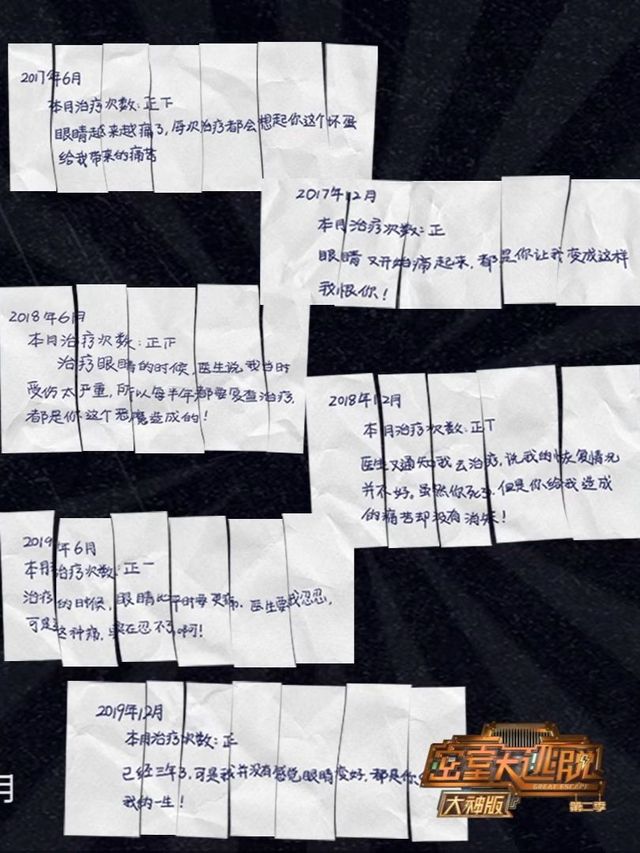 2017年6月
本月治疗次数:正下
眼睛越来越痛了,每次治疗都会想起你这个坏蛋
给我带来的痛苦
2017年12月
本月治疗次数:正
眼睛又开始痛起来,都是你让我变成这样
我恨你!
2018年6月
本月治疗次数:正正
治疗眼睛的时候,医生说,我当时
受伤太严重,所以每半年都要复查治疗,
都是你这个恶魔造成的!
2018年12月
本月治疗次数:正下
医生又通知我去治疗,说我的恢复情况
并不好。虽然你死了,但是你给我造成
的痛苦却没有消失!
2019年6月
本月治疗次数:正一
治疗的时候,眼睛比平时要更痛,医生要我忍忍,
可是这种痛,实在忍不了啊!
2019年12月
本月治疗次数:正
已经三年了,可是我并没有感觉眼睛变好,都是你
我的一生!
月
密室大逃脱
GREAT ESCAPE
大神版
第二季